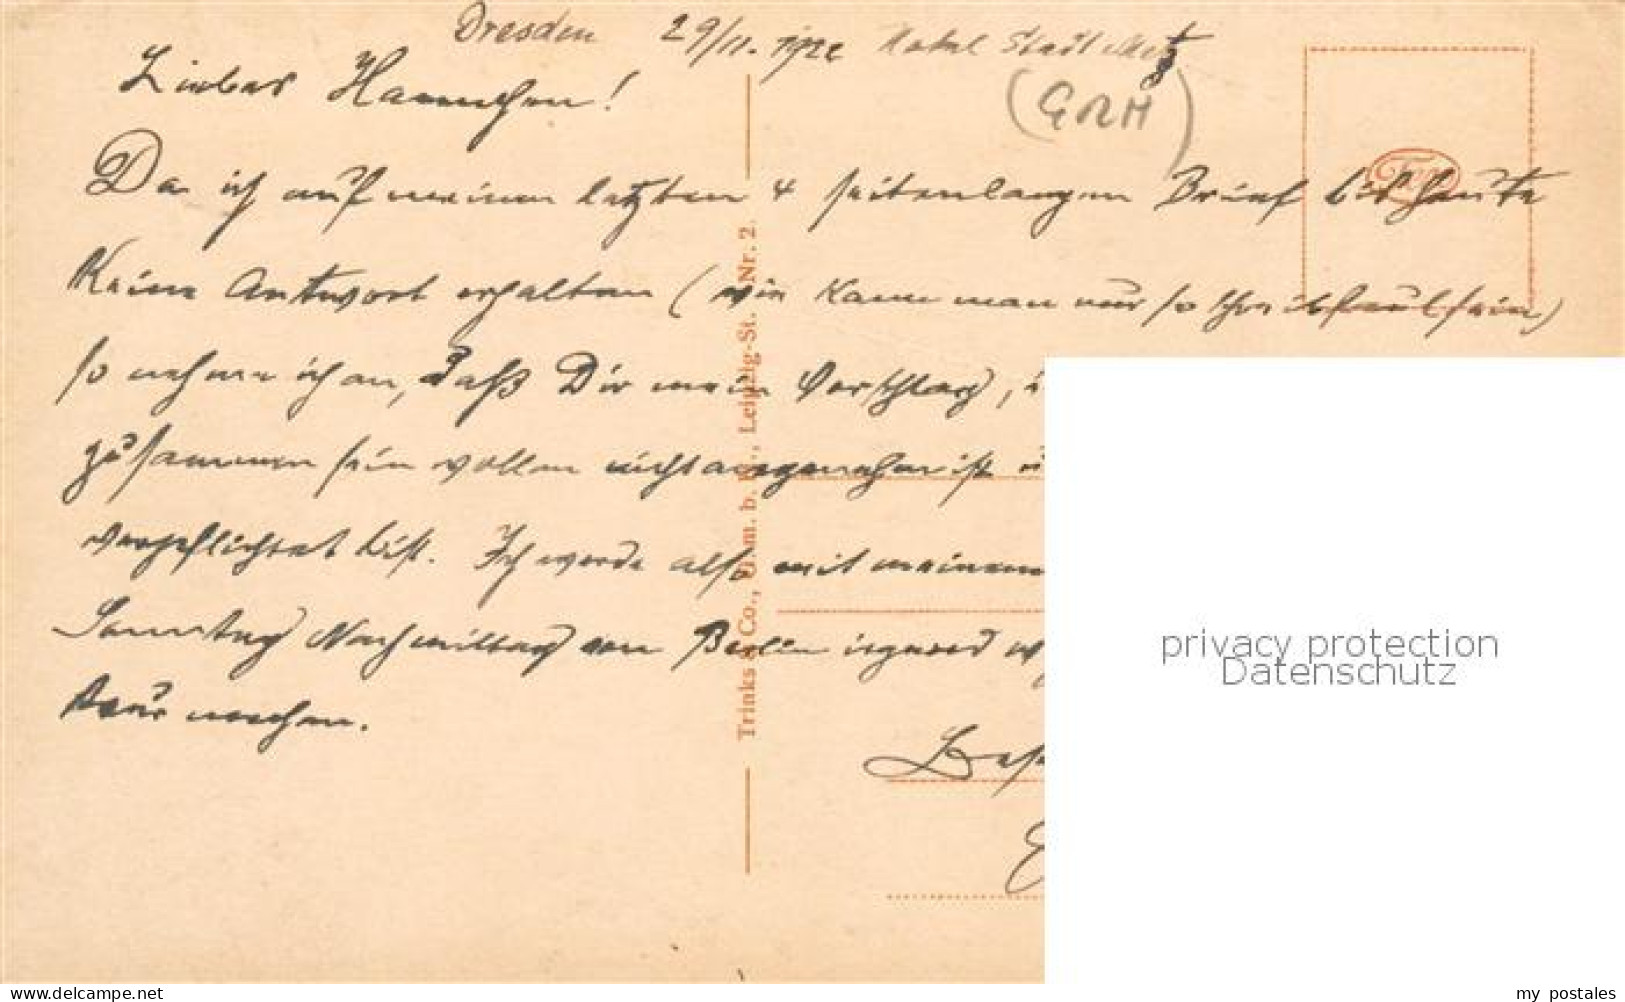 Dresden 29/11. 1922 Hotel Stadt Metz
(GRH)
Liebes Hannchen!
Da ich auf meinen letzten 4 seitenlangen Brief bis heute
Keine Antwort erhalten (wie kann man nur so schreibfaul sein)
so nehme ich an, daß Dir mein Vorschlag,
zusammen sein wollen nicht angenehm ist
verpflichtet bist. Ich werde also mit meinem
Sonntag Nachmittag von Berlin irgend
machen.
Trinks & Co., G.m.b.H., Leipzig-St. Nr. 2.
privacy protection
Datenschutz
www.delcampe.net
my_postales